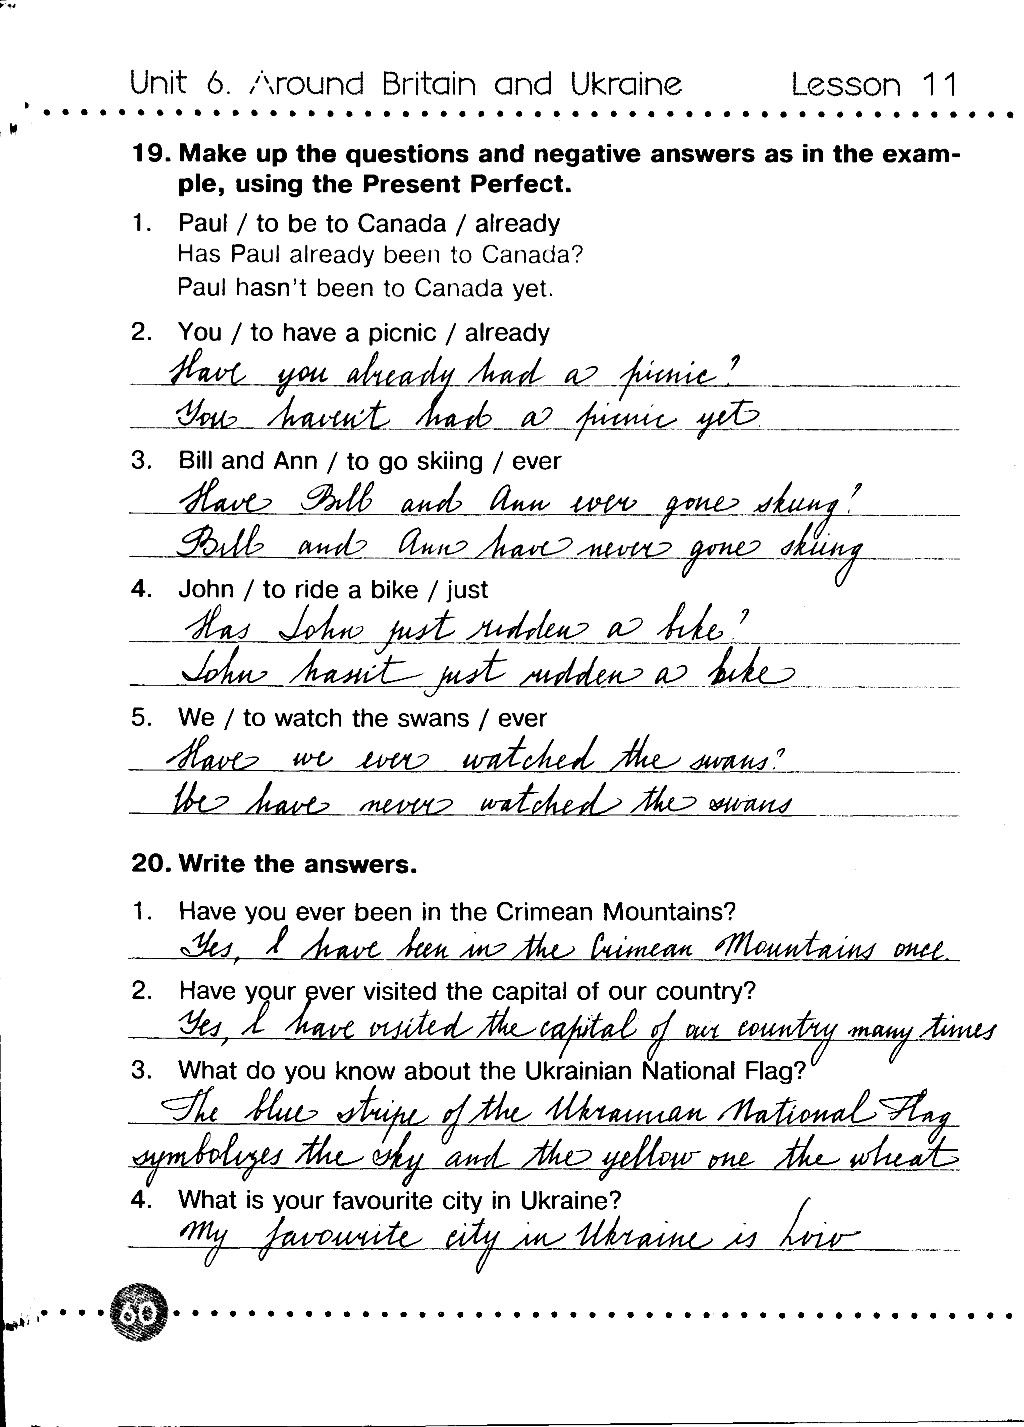 Unit 6. Around Britain and Ukraine Lesson 11
19. Make up the questions and negative answers as in the exam-
ple, using the Present Perfect.
1. Paul / to be to Canada / already
Has Paul already been to Canada?
Paul hasn't been to Canada yet.
2. You / to have a picnic / already
Have you already had a picnic?
You haven't had a picnic yet
3. Bill and Ann / to go skiing / ever
Have Bill and Ann ever gone skiing?
Bill and Ann have never gone skiing
4. John / to ride a bike / just
Has John just ridden a bike?
John hasn't just ridden a bike
5. We / to watch the swans / ever
Have we ever watched the swans?
We have never watched the swans
20. Write the answers.
1. Have you ever been in the Crimean Mountains?
Yes, I have been in the Crimean Mountains once.
2. Have your ever visited the capital of our country?
Yes, I have visited the capital of our country many times
3. What do you know about the Ukrainian National Flag?
The blue stripe of the Ukrainian National Flag
symbolizes the sky and the yellow one the wheat
4. What is your favourite city in Ukraine?
My favourite city in Ukraine is Lviv
60